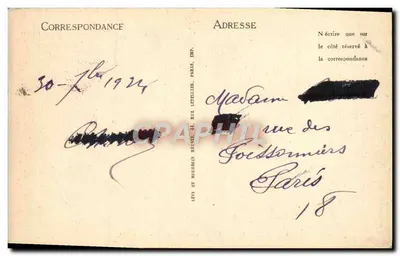 CORRESPONDANCE
ADRESSE
N'écrire que sur
le côté réservé à
la correspondance
30-7bre 1924
Madame
rue des
Poissonniers
Paris
18
LÉVY ET NEURDEIN RÉUNIS, 44, RUE LETELLIER, PARIS, IMP.
CPARAMA